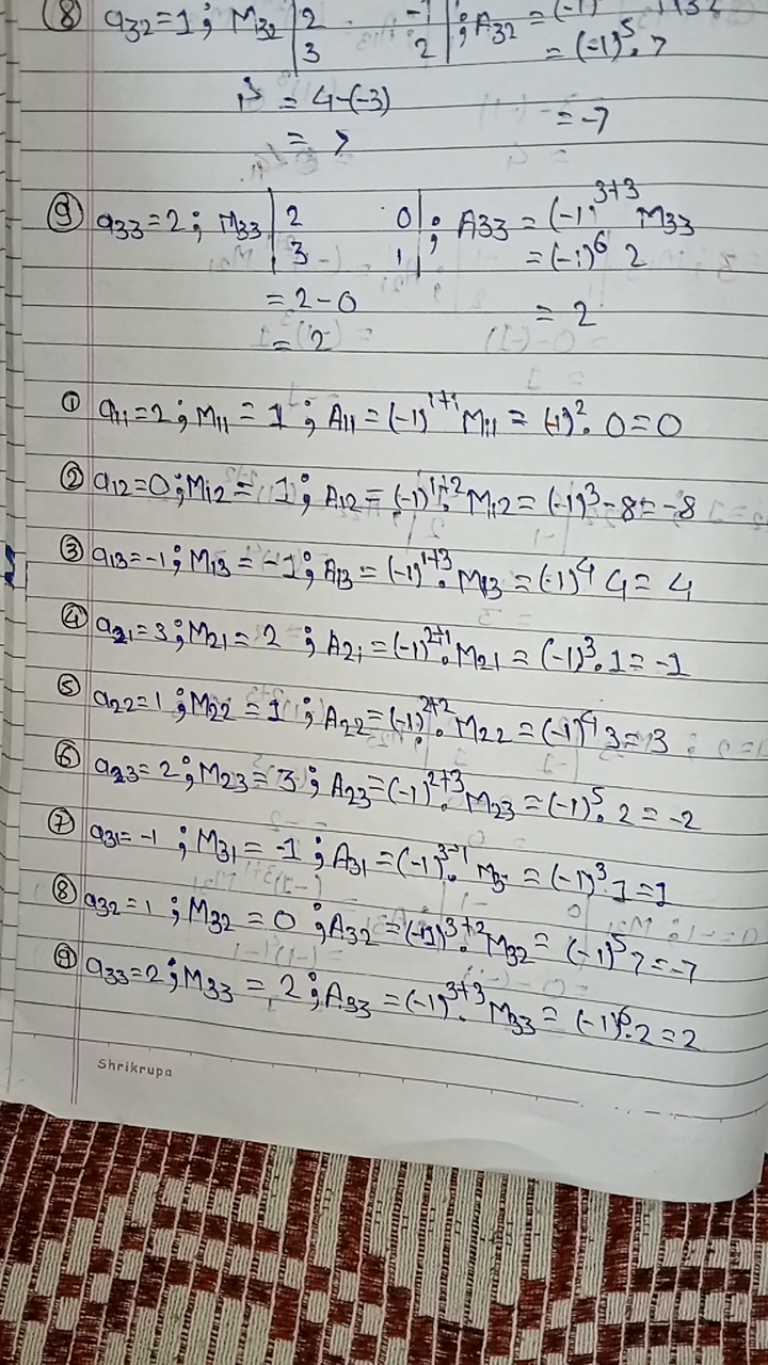 ⑧ a32=1; M32 |2 -1|; A32 = (-1)
3 2 = (-1)^5. 7
= 4-(-3)
= 7 = -7
⑨ a33=2; M33 |2 0|; A33 = (-1)^3+3 M33
3 1 = (-1)^6 2
= 2-0 = 2
= 2
① a11=2; M11 = 1; A11 = (-1)^1+1 M11 = (-1)^2. 0=0
② a12=0; M12 = 1; A12 = (-1)^1+2. M12 = (-1)^3 -8= -8
③ a13=-1; M13 = -1; A13 = (-1)^1+3. M13 = (-1)^4 4= 4
④ a21=3; M21 = 2; A21 = (-1)^2+1. M21 = (-1)^3. 1= -1
⑤ a22=1; M22 = 1; A22 = (-1)^2+2. M22 = (-1)^4 3= 3
⑥ a23=2; M23 = 3; A23 = (-1)^2+3. M23 = (-1)^5. 2 = -2
⑦ a31=-1; M31 = -1; A31 = (-1). = (-1)^3. 1 = 1
⑧ a32=1; M32 = 0; A32 = (-1)^3+2. M32 = (-1)^5 7= -7
⑨ a33=2; M33 = 2; A33 = (-1)^3+3. M33 = (-1)^6. 2 = 2
Shrikrupa